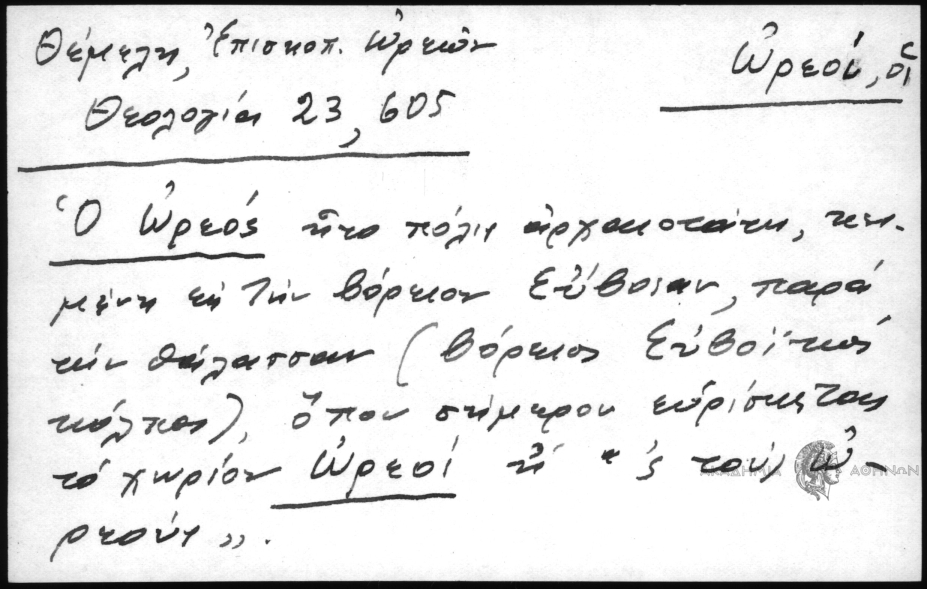 Θέμελη, Ἐπισκοπ. Ὠρεῶν
Θεολογία 23, 605
Ὠρεοί, οἱ
Ὁ Ὠρεός ἦτο πόλις ἀρχαιοτάτη, κει-
μένη εἰς τὴν βόρειον Εὔβοιαν, παρά
τήν θάλασσαν (βόρειος Εὐβοϊκός
κόλπος), ὅπου σήμερον εὑρίσκεται
τό χωρίον Ὠρεοί ἤ "'ς τούς Ὠ-
ρεούς".
ΑΚΑΔΗΜΙΑ ΑΘΗΝΩΝ